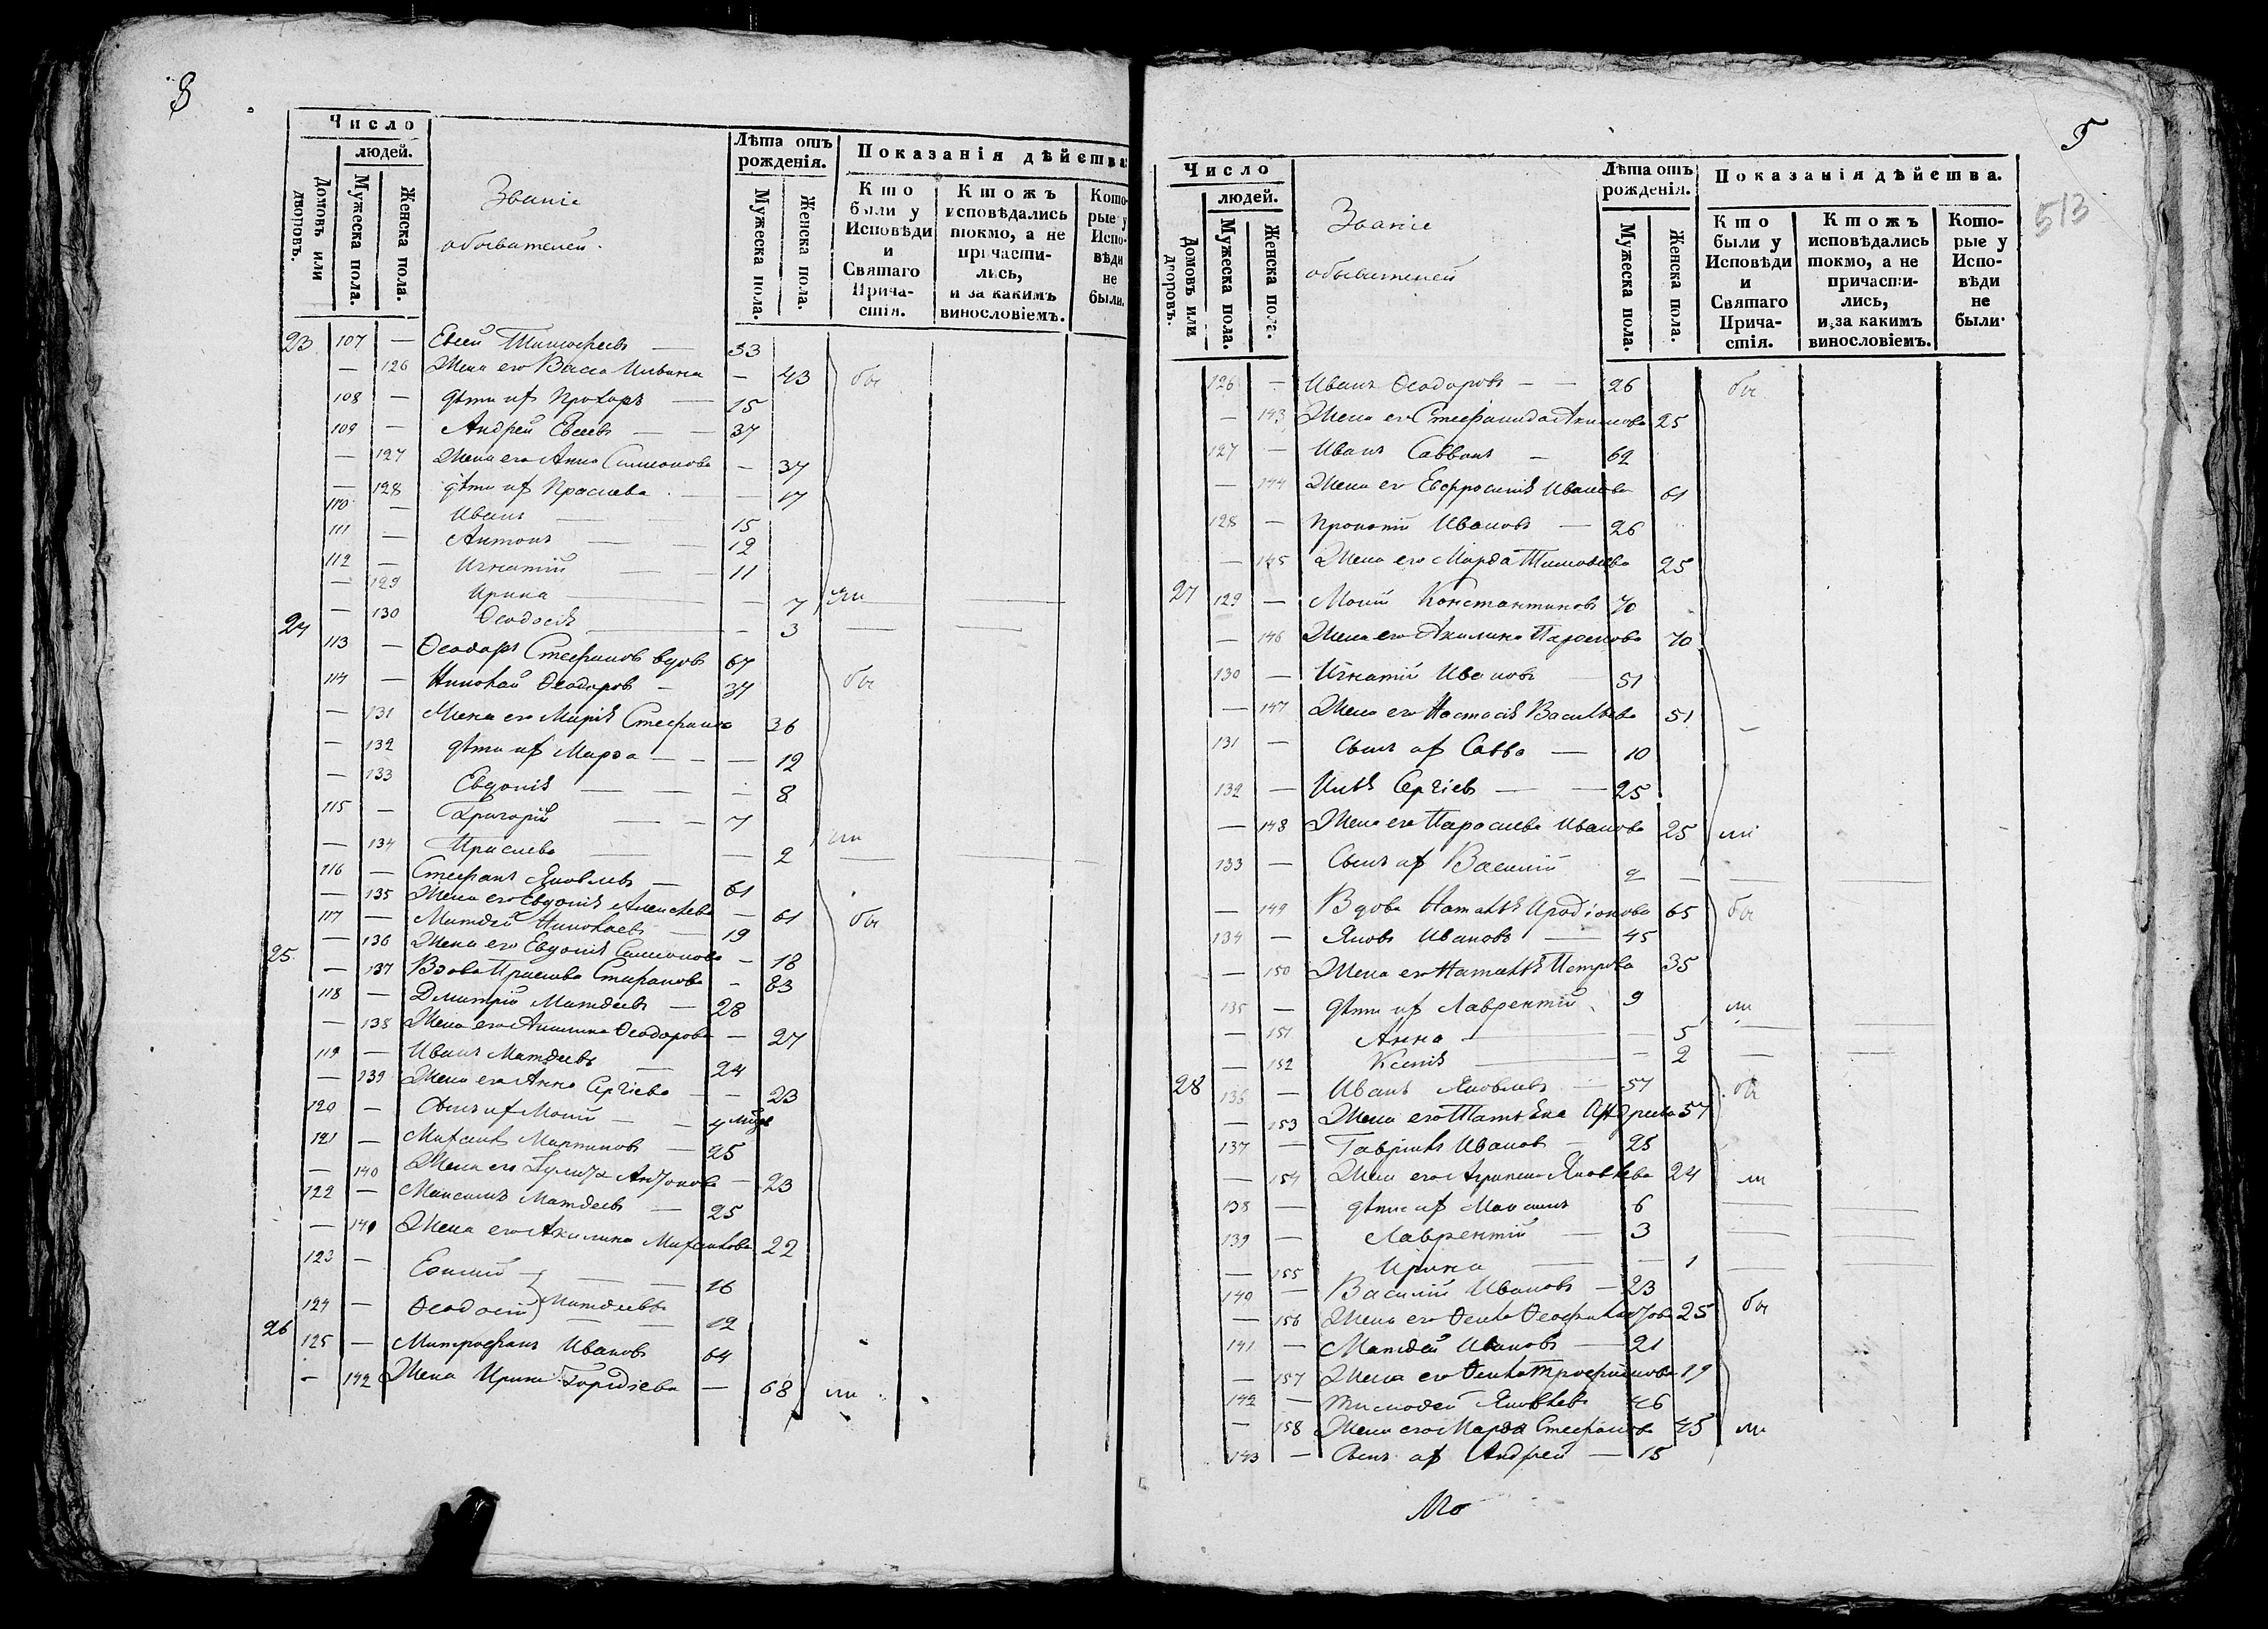 8
Число
людей.
Домовъ или дворовъ.
Мужеска пола.
Женска пола.
Званіе обывателей.
Лѣта отъ рожденія.
Мужеска пола.
Женска пола.
Показанія дѣйства
Кто были у Исповѣди и Святаго Причастія.
Ктожъ исповѣдались токмо, а не причастились, и за какимъ винословіемъ.
Которые у Исповѣди не были.
23 107 — Евсей Тимофеевъ — 53
— 126 Жена его Васса Ильина — 43 бы
108 — дѣти их Прохоръ — 15
109 — Андрей Евсеевъ — — 37
— 127 Жена его Анна Симеонова — 37
— 128 дѣти их Праскева — — 17
110 — Иванъ — — 15
111 — Антонъ — — 12
112 — Игнатій — — 11
— 129 Ирина — — 7 ли
— 130 Ѳеодосія — — 3
24 113 — Ѳеодоръ Стефановъ вдовъ 67
114 — Николай Ѳеодоровъ — 37 бы
— 131 Жена его Марія Стефанова 36
— 132 дѣти их Марѳа — — — 12
— 133 Евдокія — — — 8
115 — Григорій — — 7
— 134 Праскева — — 2 ли
116 — Стефанъ Яковлевъ — 61
— 135 Жена его Евдокія Алексѣева — 61 бы
117 — Матѳей Николаевъ — 19
— 136 Жена его Евдокія Симонова — 18
25 — 137 Вдова Праскева Стефанова — 83
118 — Димитрій Матѳеевъ — 28
— 138 Жена его Акилина Ѳеодорова — 27
119 — Иванъ Матѳеевъ — 24
— 139 Жена его Анна Сергіева — — 23
120 — Сынъ их Моисей — — 4
121 — Михаилъ Мартиновъ — 25
— 140 Жена его — 23
122 — Максимъ Матѳеевъ — 25
— 141 Жена его Акилина Михаилова 22
123 — — — 16
124 — Ѳеодосій Матѳеевы — — 12
26 125 — Митрофанъ Ивановъ 64
— 142 Жена Ирина Гордіева — 68 ли
5
513
Число
людей.
Домовъ или дворовъ.
Мужеска пола.
Женска пола.
Званіе обывателей
Лѣта отъ рожденія.
Мужеска пола.
Женска пола.
Показанія дѣйства.
Кто были у Исповѣди и Святаго Причастія.
Ктожъ исповѣдались токмо, а не причастились, и за какимъ винословіемъ.
Которые у Исповѣди не были.
126 — Иванъ Ѳеодоровъ — — 26 бы
— 143 Жена его Стефанида Акимова 25
127 — Иванъ Саввинъ — 62
— 144 Жена его Евфросинія Иванова 61
128 — Прокопій Ивановъ — 26
— 145 Жена его Марѳа Тимофѣева 25
27 129 — Моисей Константиновъ 70
— 146 Жена его Акилина 70
130 — Игнатій Ивановъ 51
— 147 Жена его Настасія Васильева 51
131 — Сынъ их Савва — 10
132 — Илья Сергіевъ — — 25
— 148 Жена его Параскева Иванова 25 ли
133 — Сынъ их Василій 2 —
— 149 Вдова Наталья Иродіонова 65 бы
134 — Яковъ Ивановъ — 45
— 150 Жена его Наталья Петрова 35
135 — дѣти их Лаврентій 9 ли
— 151 Анна — — 5
— 152 Ксенія — — 2
28 136 — Иванъ Яковлевъ — 57 бы
— 153 Жена его Татьяна Андреева 57
137 — Гавріилъ Ивановъ — 25
— 154 Жена его Яковлева 24 ли
138 — дѣти их Максимъ 6
139 — Лаврентій — 3
— 155 Ирина — — 1
140 — Василій Ивановъ — 23
— 156 Жена его Ѳекла 25 бы
141 — Матѳей Ивановъ — 21
— 157 Жена его Ѳекла Трофимова 19
142 — Тимоѳей Яковлевъ 46
— 158 Жена его Марѳа Стефанова 45 ли
143 — Сынъ их Андрей — 15